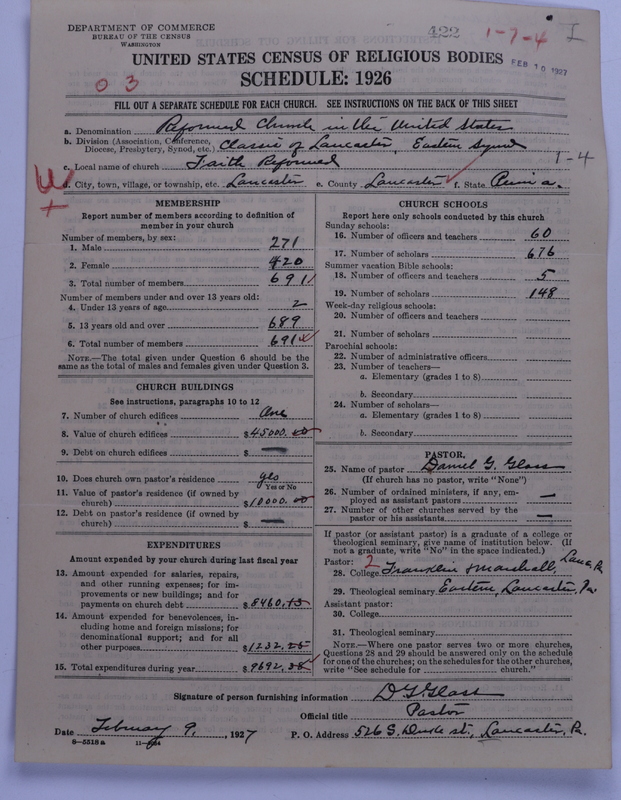 DEPARTMENT OF COMMERCE
BUREAU OF THE CENSUS
WASHINGTON
422
1-7-4
I
UNITED STATES CENSUS OF RELIGIOUS BODIES
FEB 10 1927
SCHEDULE: 1926
03
FILL OUT A SEPARATE SCHEDULE FOR EACH CHURCH. SEE INSTRUCTIONS ON THE BACK OF THIS SHEET
a. Denomination Reformed Church in the United States
b. Division (Association, Conference, Diocese, Presbytery, Synod, etc.) Classis of Lancaster, Eastern Synod
c. Local name of church Faith Reformed
1-4
d. City, town, village, or township, etc. Lancaster e. County Lancaster f. State Penn'a.
MEMBERSHIP
Report number of members according to definition of member in your church
Number of members, by sex:
1. Male 271
2. Female 420
3. Total number of members 691
Number of members under and over 13 years old:
4. Under 13 years of age 2
5. 13 years old and over 689
6. Total number of members 691
NOTE.—The total given under Question 6 should be the same as the total of males and females given under Question 3.
CHURCH BUILDINGS
See instructions, paragraphs 10 to 12
7. Number of church edifices One
8. Value of church edifices $45000.00
9. Debt on church edifices $ —
10. Does church own pastor's residence Yes
Yes or No
11. Value of pastor's residence (if owned by church) $10000.00
12. Debt on pastor's residence (if owned by church) $ —
EXPENDITURES
Amount expended by your church during last fiscal year
13. Amount expended for salaries, repairs, and other running expenses; for improvements or new buildings; and for payments on church debt $8460.13
14. Amount expended for benevolences, including home and foreign missions; for denominational support; and for all other purposes $1232.25
15. Total expenditures during year $9692.38
CHURCH SCHOOLS
Report here only schools conducted by this church
Sunday schools:
16. Number of officers and teachers 60
17. Number of scholars 676
Summer vacation Bible schools:
18. Number of officers and teachers 5
19. Number of scholars 148
Week-day religious schools:
20. Number of officers and teachers
21. Number of scholars
Parochial schools:
22. Number of administrative officers
23. Number of teachers—
a. Elementary (grades 1 to 8)
b. Secondary
24. Number of scholars—
a. Elementary (grades 1 to 8)
b. Secondary
PASTOR
25. Name of pastor Daniel G. Glass
(If church has no pastor, write "None")
26. Number of ordained ministers, if any, employed as assistant pastors —
27. Number of other churches served by the pastor or his assistants —
If pastor (or assistant pastor) is a graduate of a college or theological seminary, give name of institution below. (If not a graduate, write "No" in the space indicated.)
Pastor: 2
28. College Franklin & Marshall, Lanc. Pa
29. Theological seminary Eastern, Lancaster, Pa.
Assistant pastor:
30. College
31. Theological seminary
NOTE.—Where one pastor serves two or more churches, Questions 28 and 29 should be answered only on the schedule for one of the churches; on the schedules for the other churches, write "See schedule for ________ church."
Signature of person furnishing information D G Glass
Official title Pastor
Date February 9, 1927 P. O. Address 526 S. Duke st., Lancaster, Pa.
8-5318a